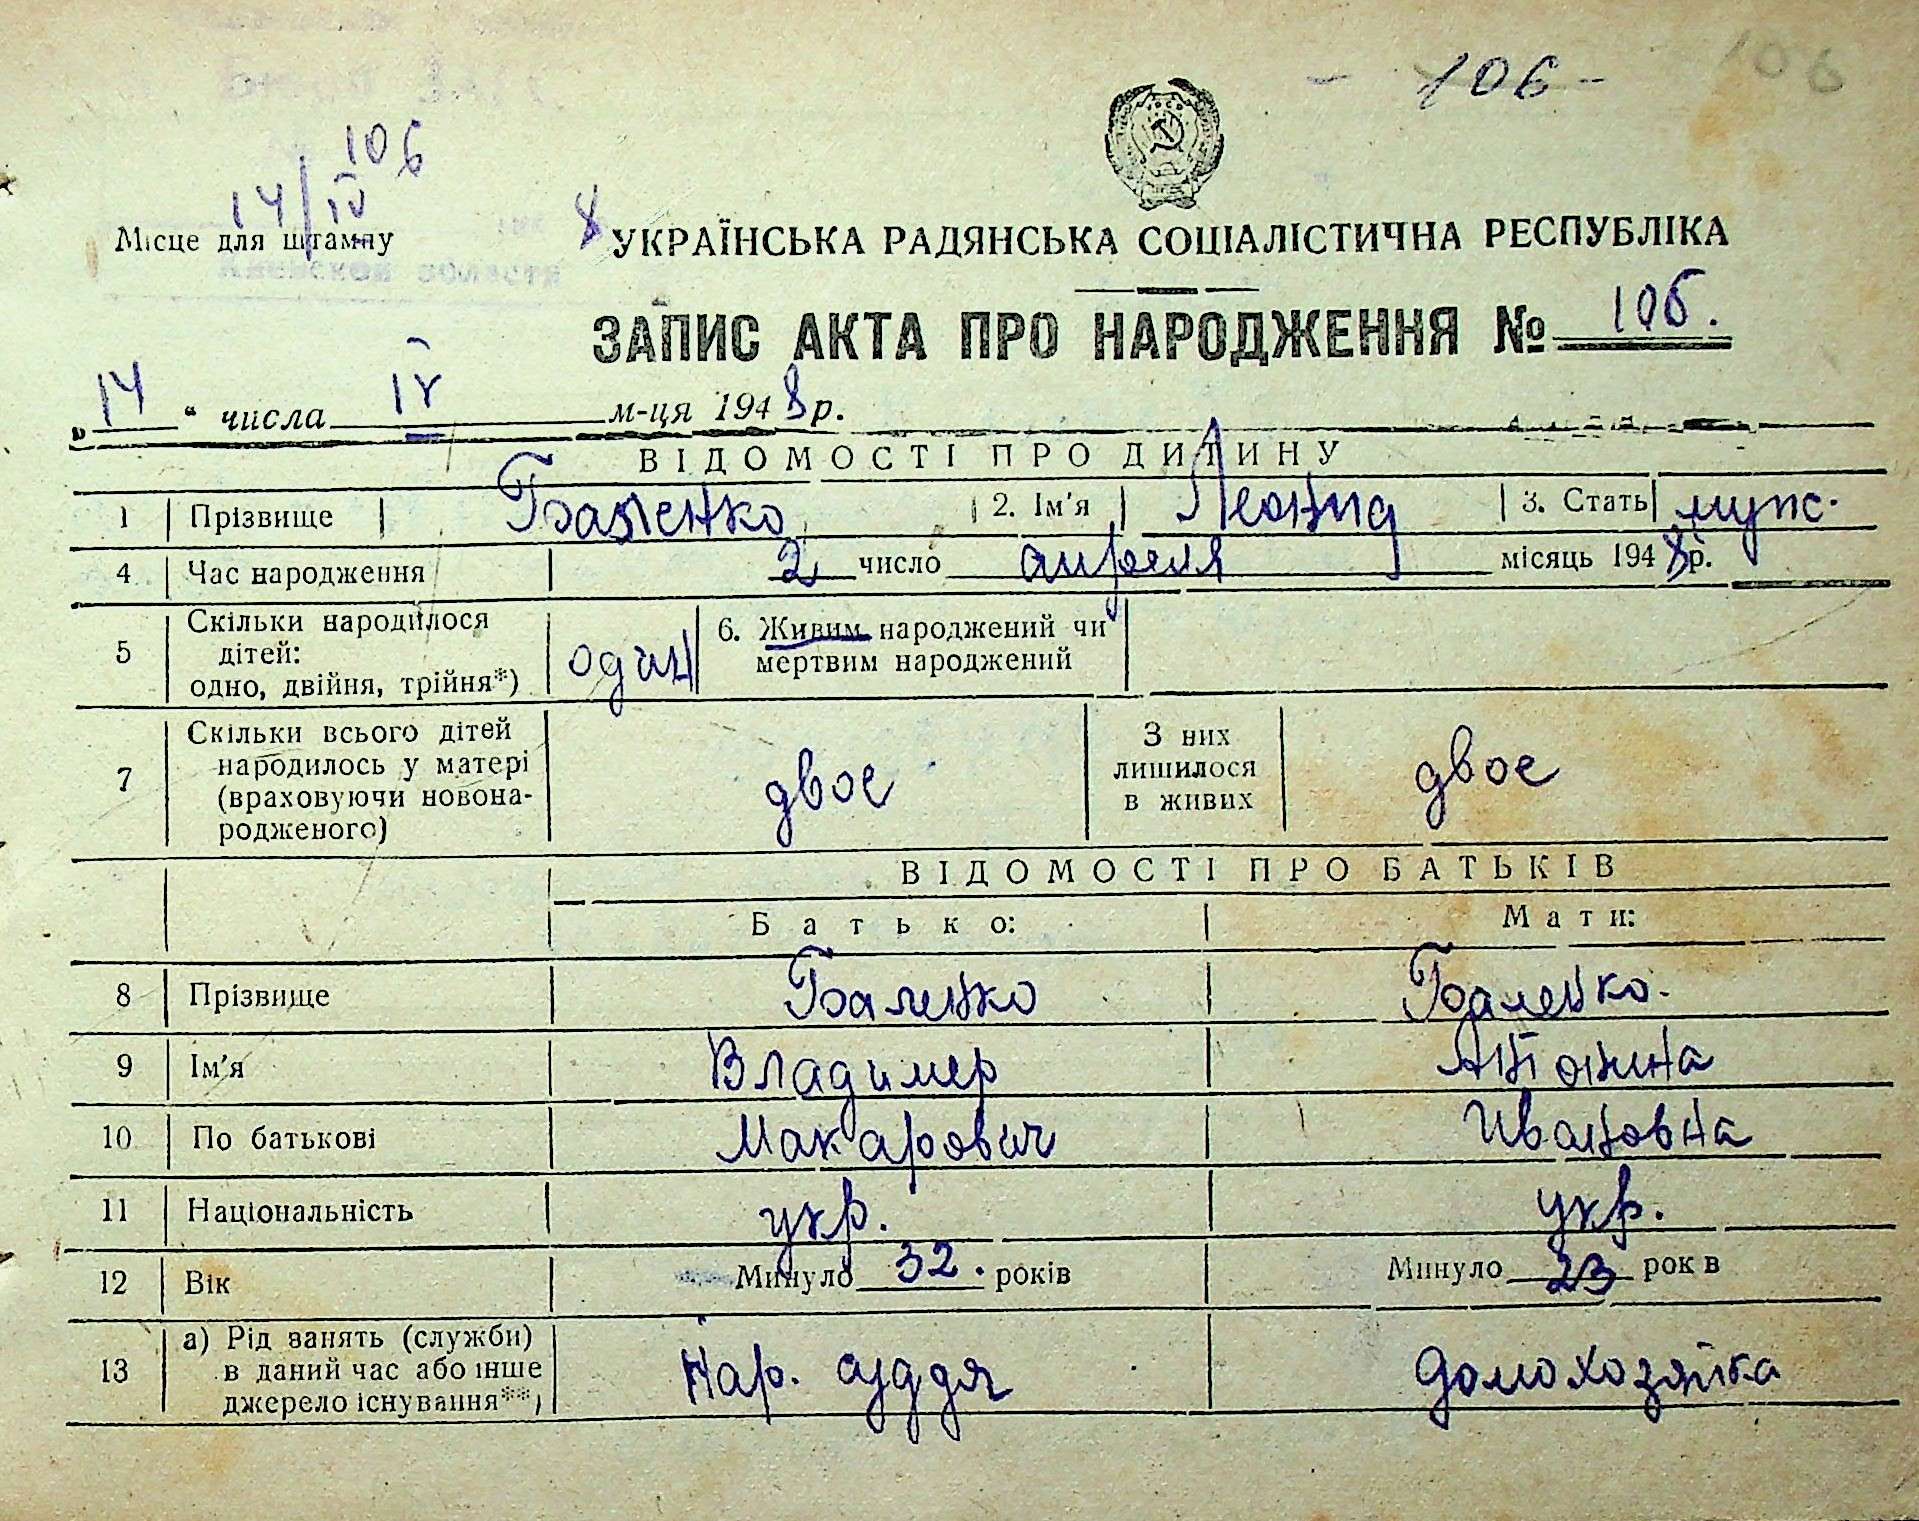 - 106 -
106
106
14/IV 8
Місце для штампу
Киевской области
УКРАЇНСЬКА РАДЯНСЬКА СОЦІАЛІСТИЧНА РЕСПУБЛІКА
ЗАПИС АКТА ПРО НАРОДЖЕННЯ № 106.
„14“ числа IV м-ця 1948 р.
ВІДОМОСТІ ПРО ДИТИНУ
1 Прізвище Баленко 2. Ім'я Леонид 3. Стать муж.
4 Час народження 2 число апреля місяць 1948 р.
5 Скільки народилося дітей: одно, двійня, трійня*) один 6. Живим народжений чи мертвим народжений
7 Скільки всього дітей народилось у матері (враховуючи новонародженого) двое З них лишилося в живих двое
ВІДОМОСТІ ПРО БАТЬКІВ
Батько: Мати:
8 Прізвище Баленко Баленко.
9 Ім'я Владимер Антонина
10 По батькові Макарович Ивановна
11 Національність укр. укр.
12 Вік Минуло 32. років Минуло 23 рок в
13 а) Рід занять (служби) в даний час або інше джерело існування**) Нар. суддя домохозяйка